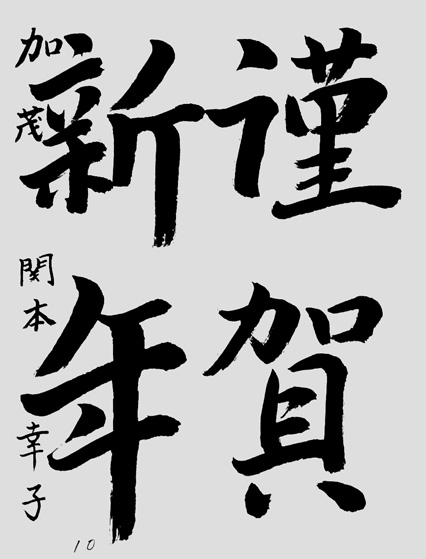 謹賀
新年
加茂 関本 幸子
10